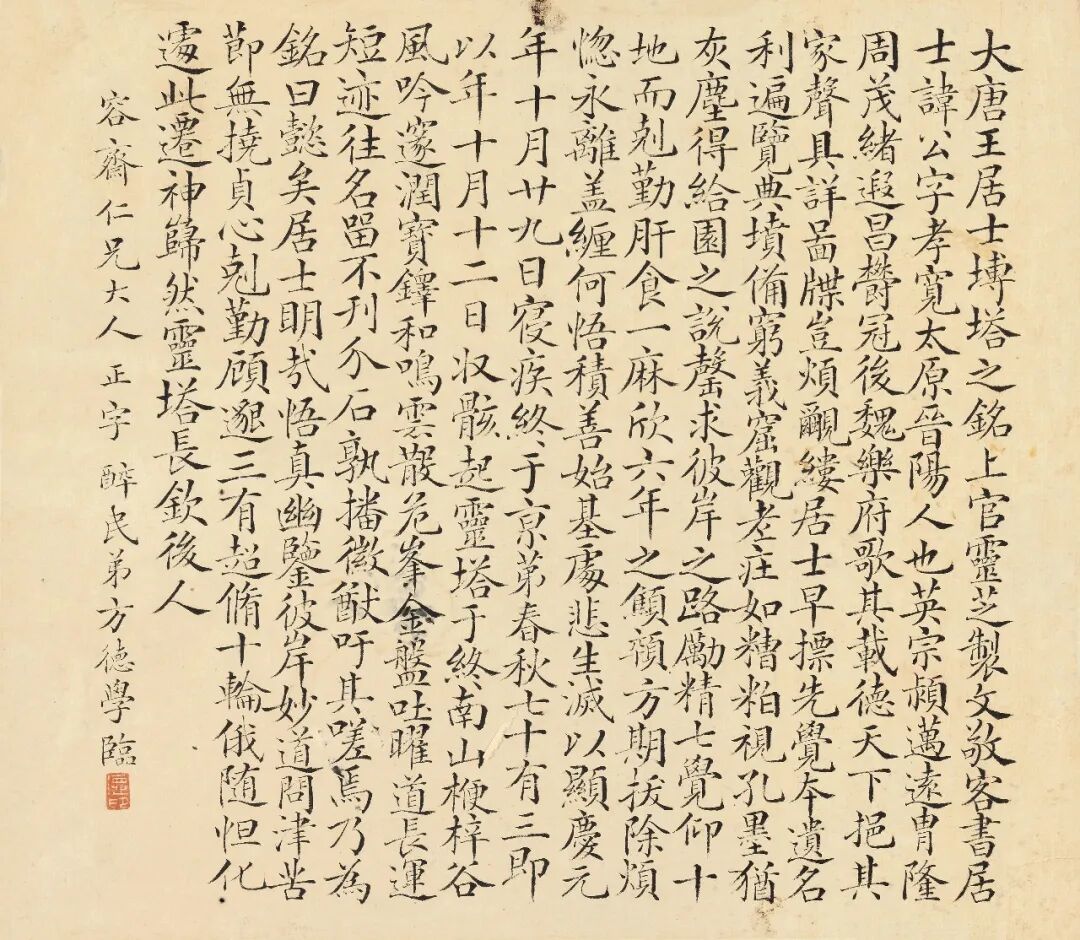 大唐王居士塼塔之銘上官靈芝製文敬客書居
士諱公字孝寬太原晉陽人也英宗潁邁遠胄隆
周茂緒遐昌欝冠後魏樂府歌其載德天下挹其
家聲具詳啚牒豈煩覼縷居士早摽先覺本遺名
利遍覽典墳備窮義窟觀老莊如糟粕視孔墨猶
灰塵得給園之說罄求彼岸之路勵精七覺仰十
地而剋勤肝食一麻欣六年之顦顇方期拔除煩
惚永離盖纏何悟積善始基處悲生滅以顯慶元
年十月廿九日寑疾終于京第春秋七十有三即
以年十月十二日収骸起靈塔于終南山梗梓谷
風吟邃澗寶鐸和鳴雲散危峯金盤吐曜道長運
短迹往名留不刊介石孰播徽猷吁其嗟焉乃為
銘曰懿矣居士明哉悟真幽鑒彼岸妙道問津苦
節無撓貞心剋勤顧邈三有超脩十輪俄随怛化
遽此遷神巋然靈塔長欽後人
容齋仁兄大人正字 醉民弟方德學臨